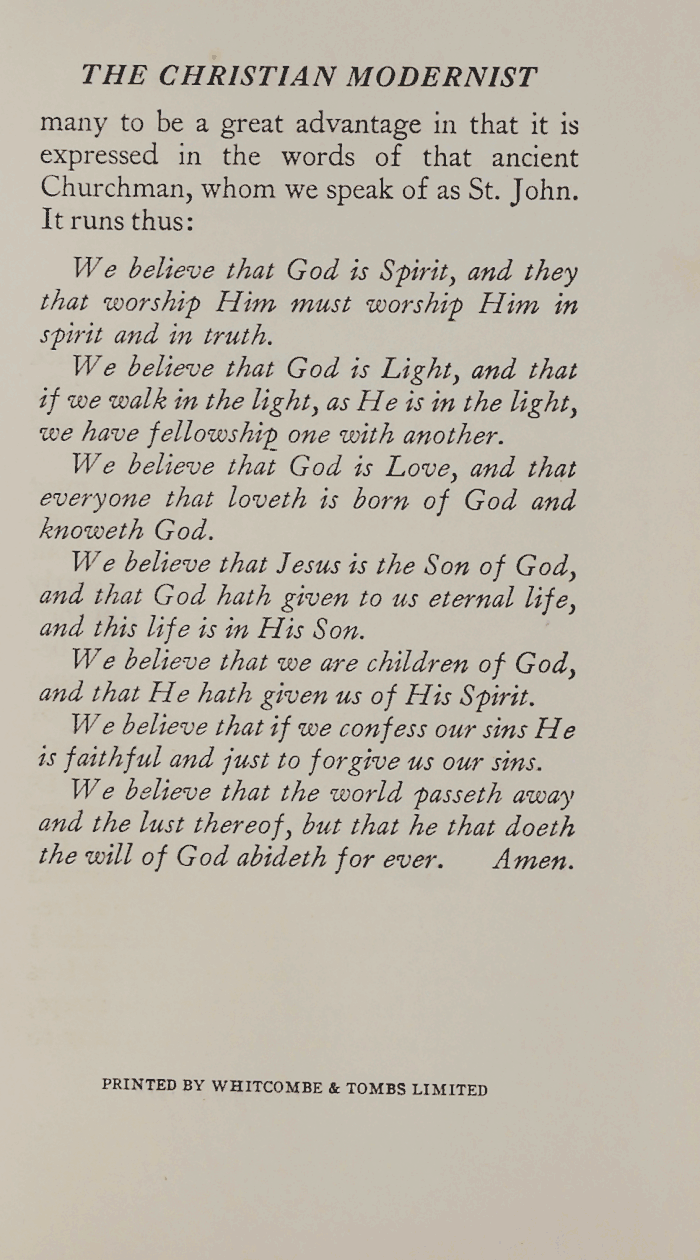 THE CHRISTIAN MODERNIST
many to be a great advantage in that it is
expressed in the words of that ancient
Churchman, whom we speak of as St. John.
It runs thus:
We believe that God is Spirit, and they
that worship Him must worship Him in
spirit and in truth.
We believe that God is Light, and that
if we walk in the light, as He is in the light,
we have fellowship one with another.
We believe that God is Love, and that
everyone that loveth is born of God and
knoweth God.
We believe that Jesus is the Son of God,
and that God hath given to us eternal life,
and this life is in His Son.
We believe that we are children of God,
and that He hath given us of His Spirit.
We believe that if we confess our sins He
is faithful and just to forgive us our sins.
We believe that the world passeth away
and the lust thereof, but that he that doeth
the will of God abideth for ever. Amen.
PRINTED BY WHITCOMBE & TOMBS LIMITED